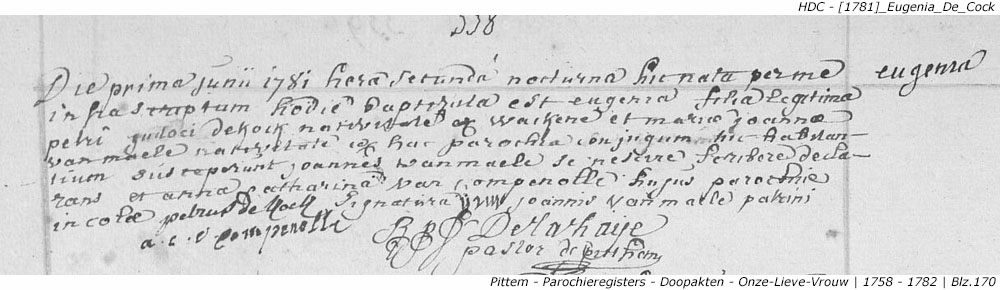 HDC - [1781]_Eugenia_De_Cock
338
Die prima Junii 1781 hora secunda nocturna hic nata per me eugenia
infrascriptum hodie baptizata est eugenia filia legitima
petri judoci dekock nativitate ex wackene et mariæ joannæ
vanmaele nativitate ex hac parochia conjugum hic habitan-
tium susceperunt joannes vanmaele se nescire scribere decla-
rans et anna catharina van Compenolle hujus parochiæ
incolæ petrus de Kock Signatura joannis vanmaele patrini
a. c. v Compenolle
Delahaije
pastor de pitthem
Pittem - Parochieregisters - Doopakten - Onze-Lieve-Vrouw | 1758 - 1782 | Blz.170